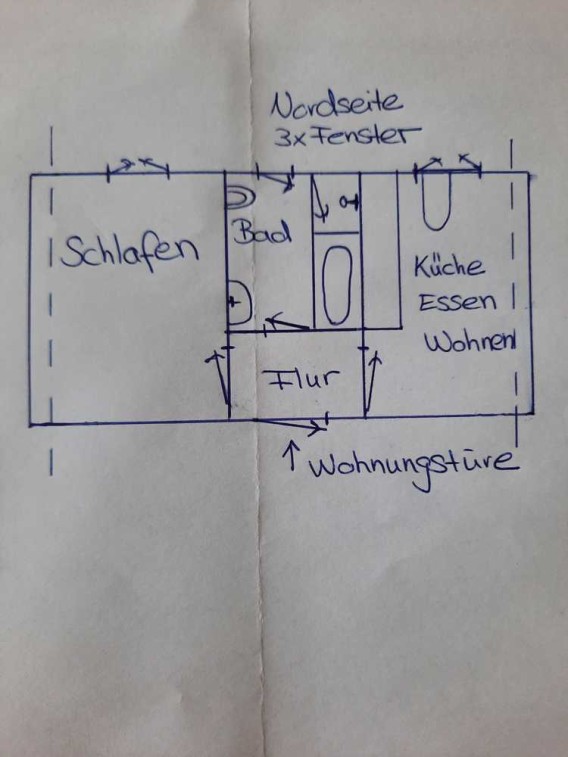 Nordseite
3x Fenster
Schlafen
Bad
Küche
Essen
Wohnen
Flur
↑ Wohnungstüre